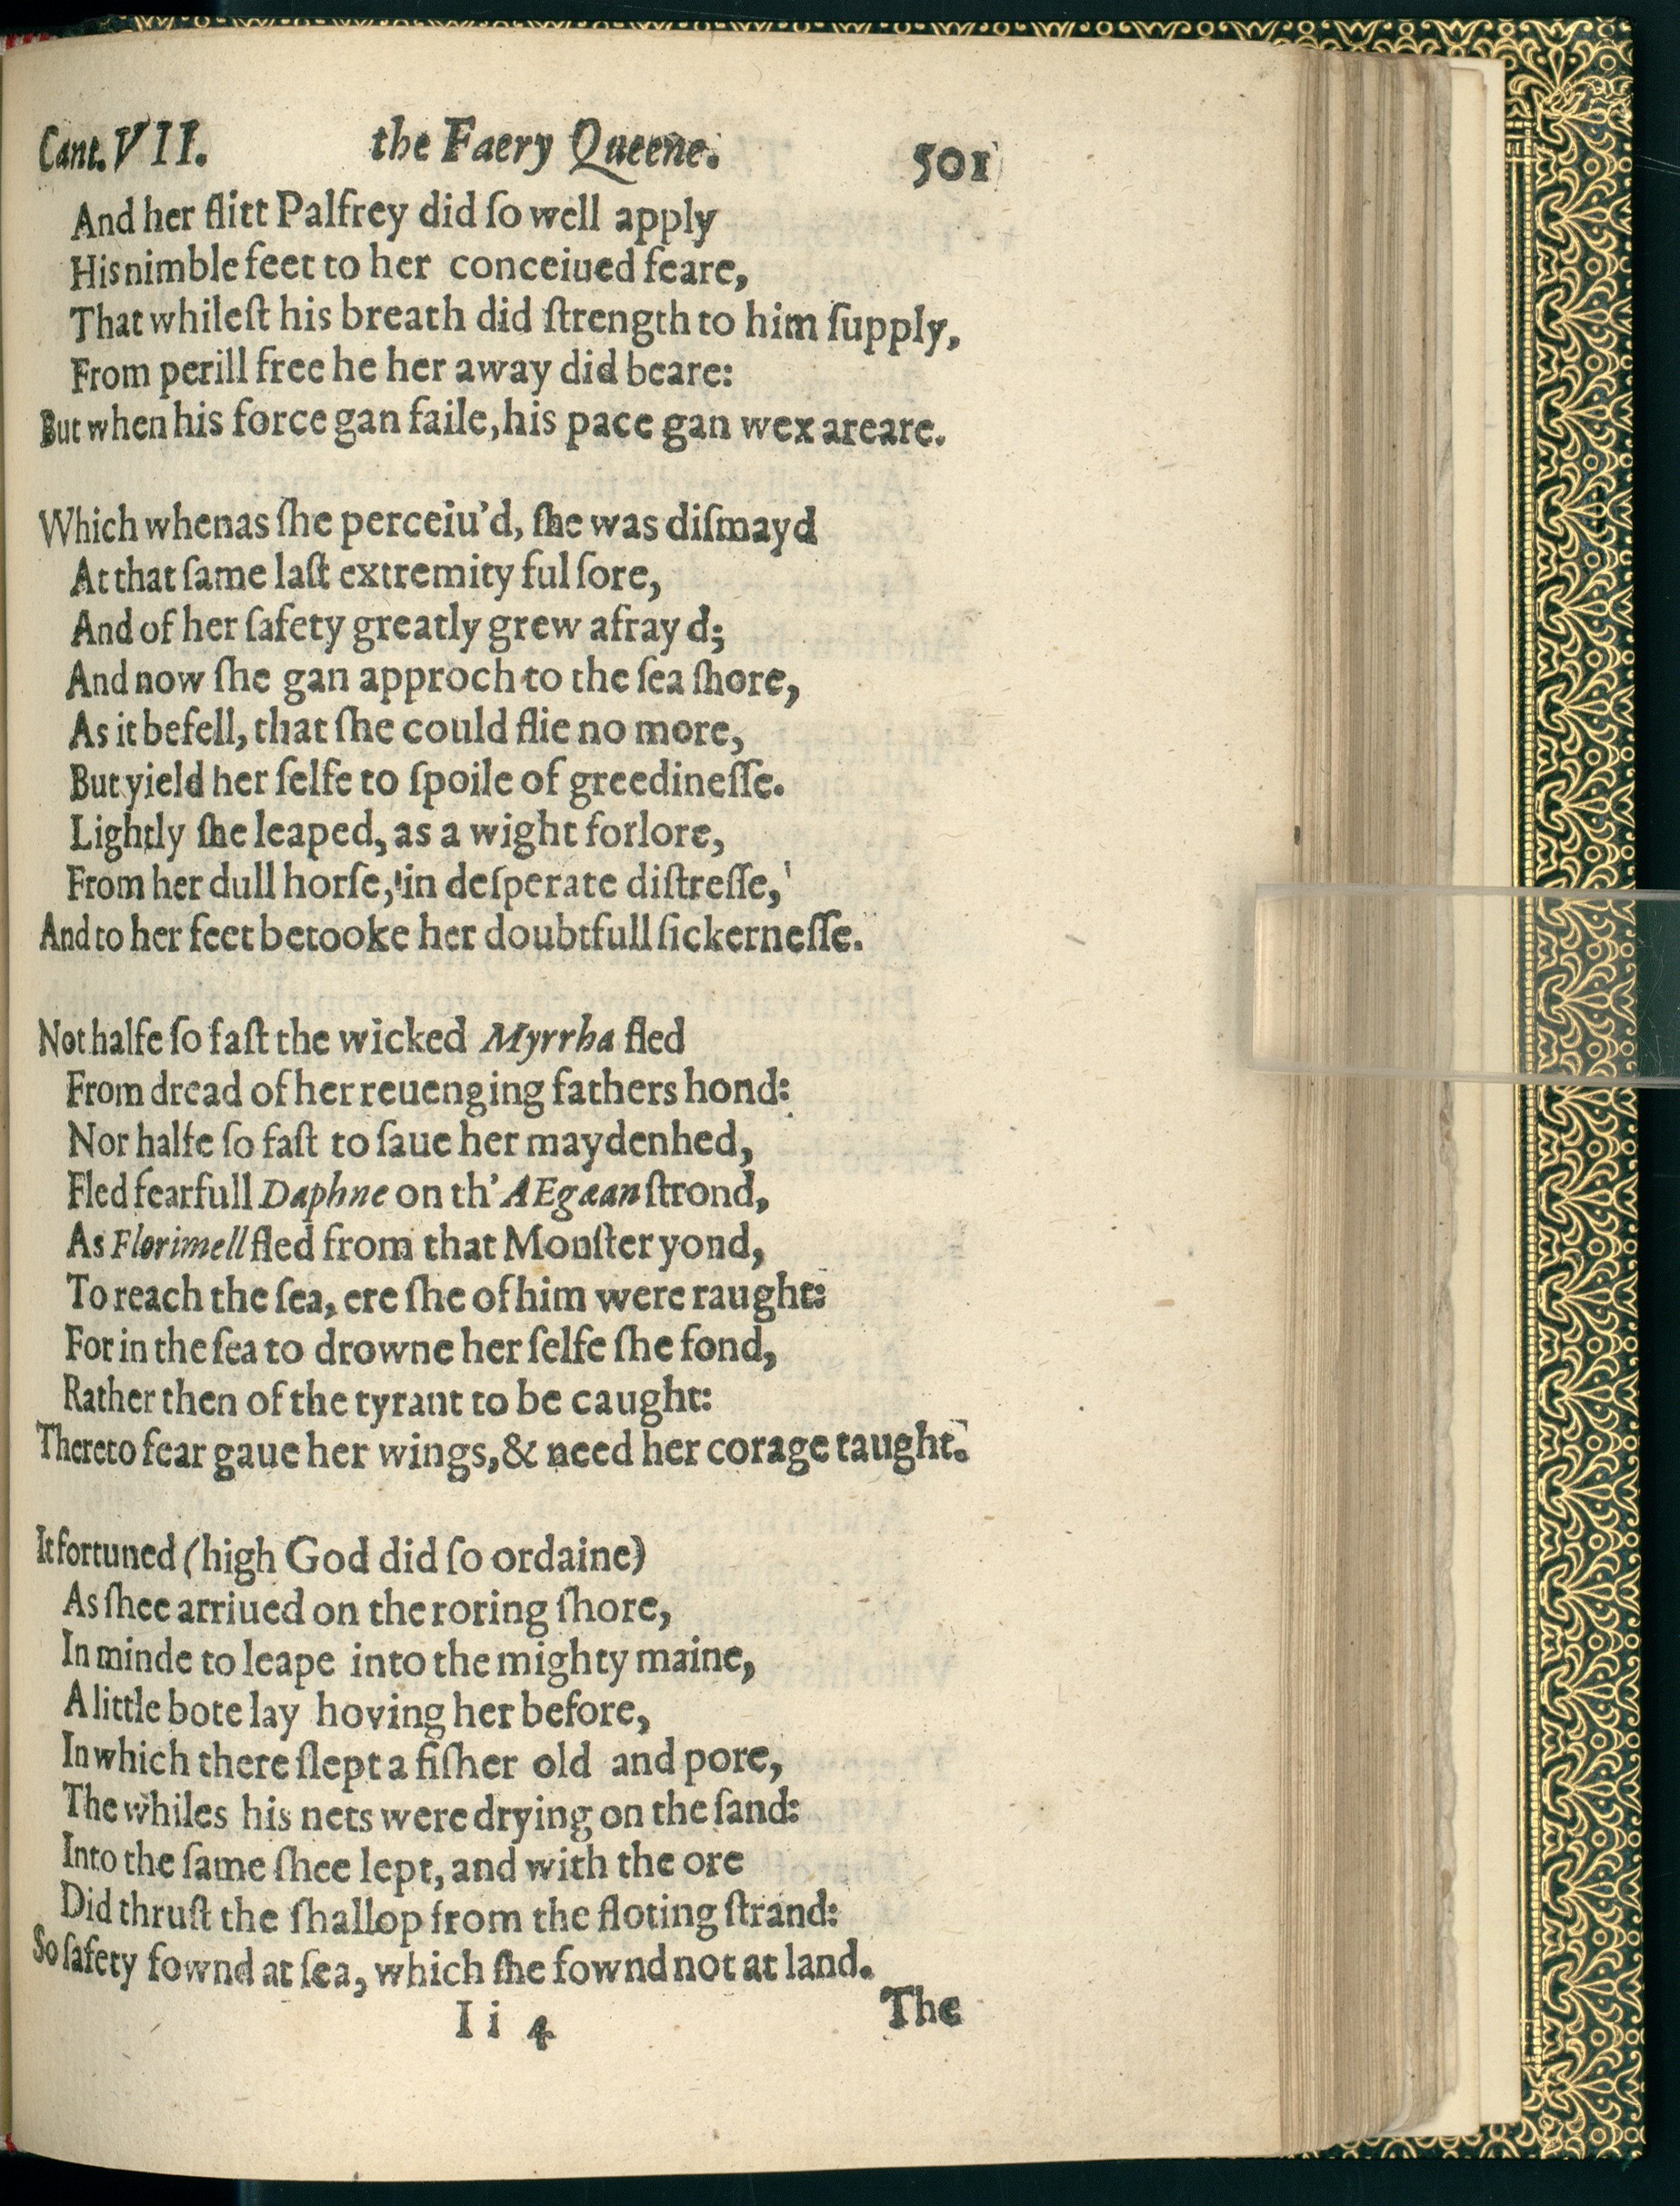 Cant. VII. the Faery Queene. 501
And her flitt Palfrey did ſo well apply
His nimble feet to her conceiued feare,
That whileſt his breath did ſtrength to him ſupply,
From perill free he her away did beare:
But when his force gan faile, his pace gan wex areare.
Which whenas ſhe perceiu'd, ſhe was diſmayd
At that ſame laſt extremity ful ſore,
And of her ſafety greatly grew afrayd;
And now ſhe gan approch to the ſea ſhore,
As it befell, that ſhe could flie no more,
But yield her ſelfe to ſpoile of greedineſſe.
Lightly ſhe leaped, as a wight forlore,
From her dull horſe, in deſperate diſtreſſe,
And to her feet betooke her doubtfull ſickerneſſe.
Not halfe ſo faſt the wicked Myrrha fled
From dread of her reuenging fathers hond:
Nor halfe ſo faſt to ſaue her maydenhed,
Fled fearfull Daphne on th' AEgæan ſtrond,
As Florimell fled from that Monſter yond,
To reach the ſea, ere ſhe of him were raught:
For in the ſea to drowne her ſelfe ſhe fond,
Rather then of the tyrant to be caught:
Thereto fear gaue her wings, & need her corage taught.
It fortuned (high God did ſo ordaine)
As ſhee arriued on the roring ſhore,
In minde to leape into the mighty maine,
A little bote lay hoving her before,
In which there ſlept a fiſher old and pore,
The whiles his nets were drying on the ſand:
Into the ſame ſhee lept, and with the ore
Did thruſt the ſhallop from the floting ſtrand:
So ſafety fownd at ſea, which ſhe fownd not at land.
I i 4 The